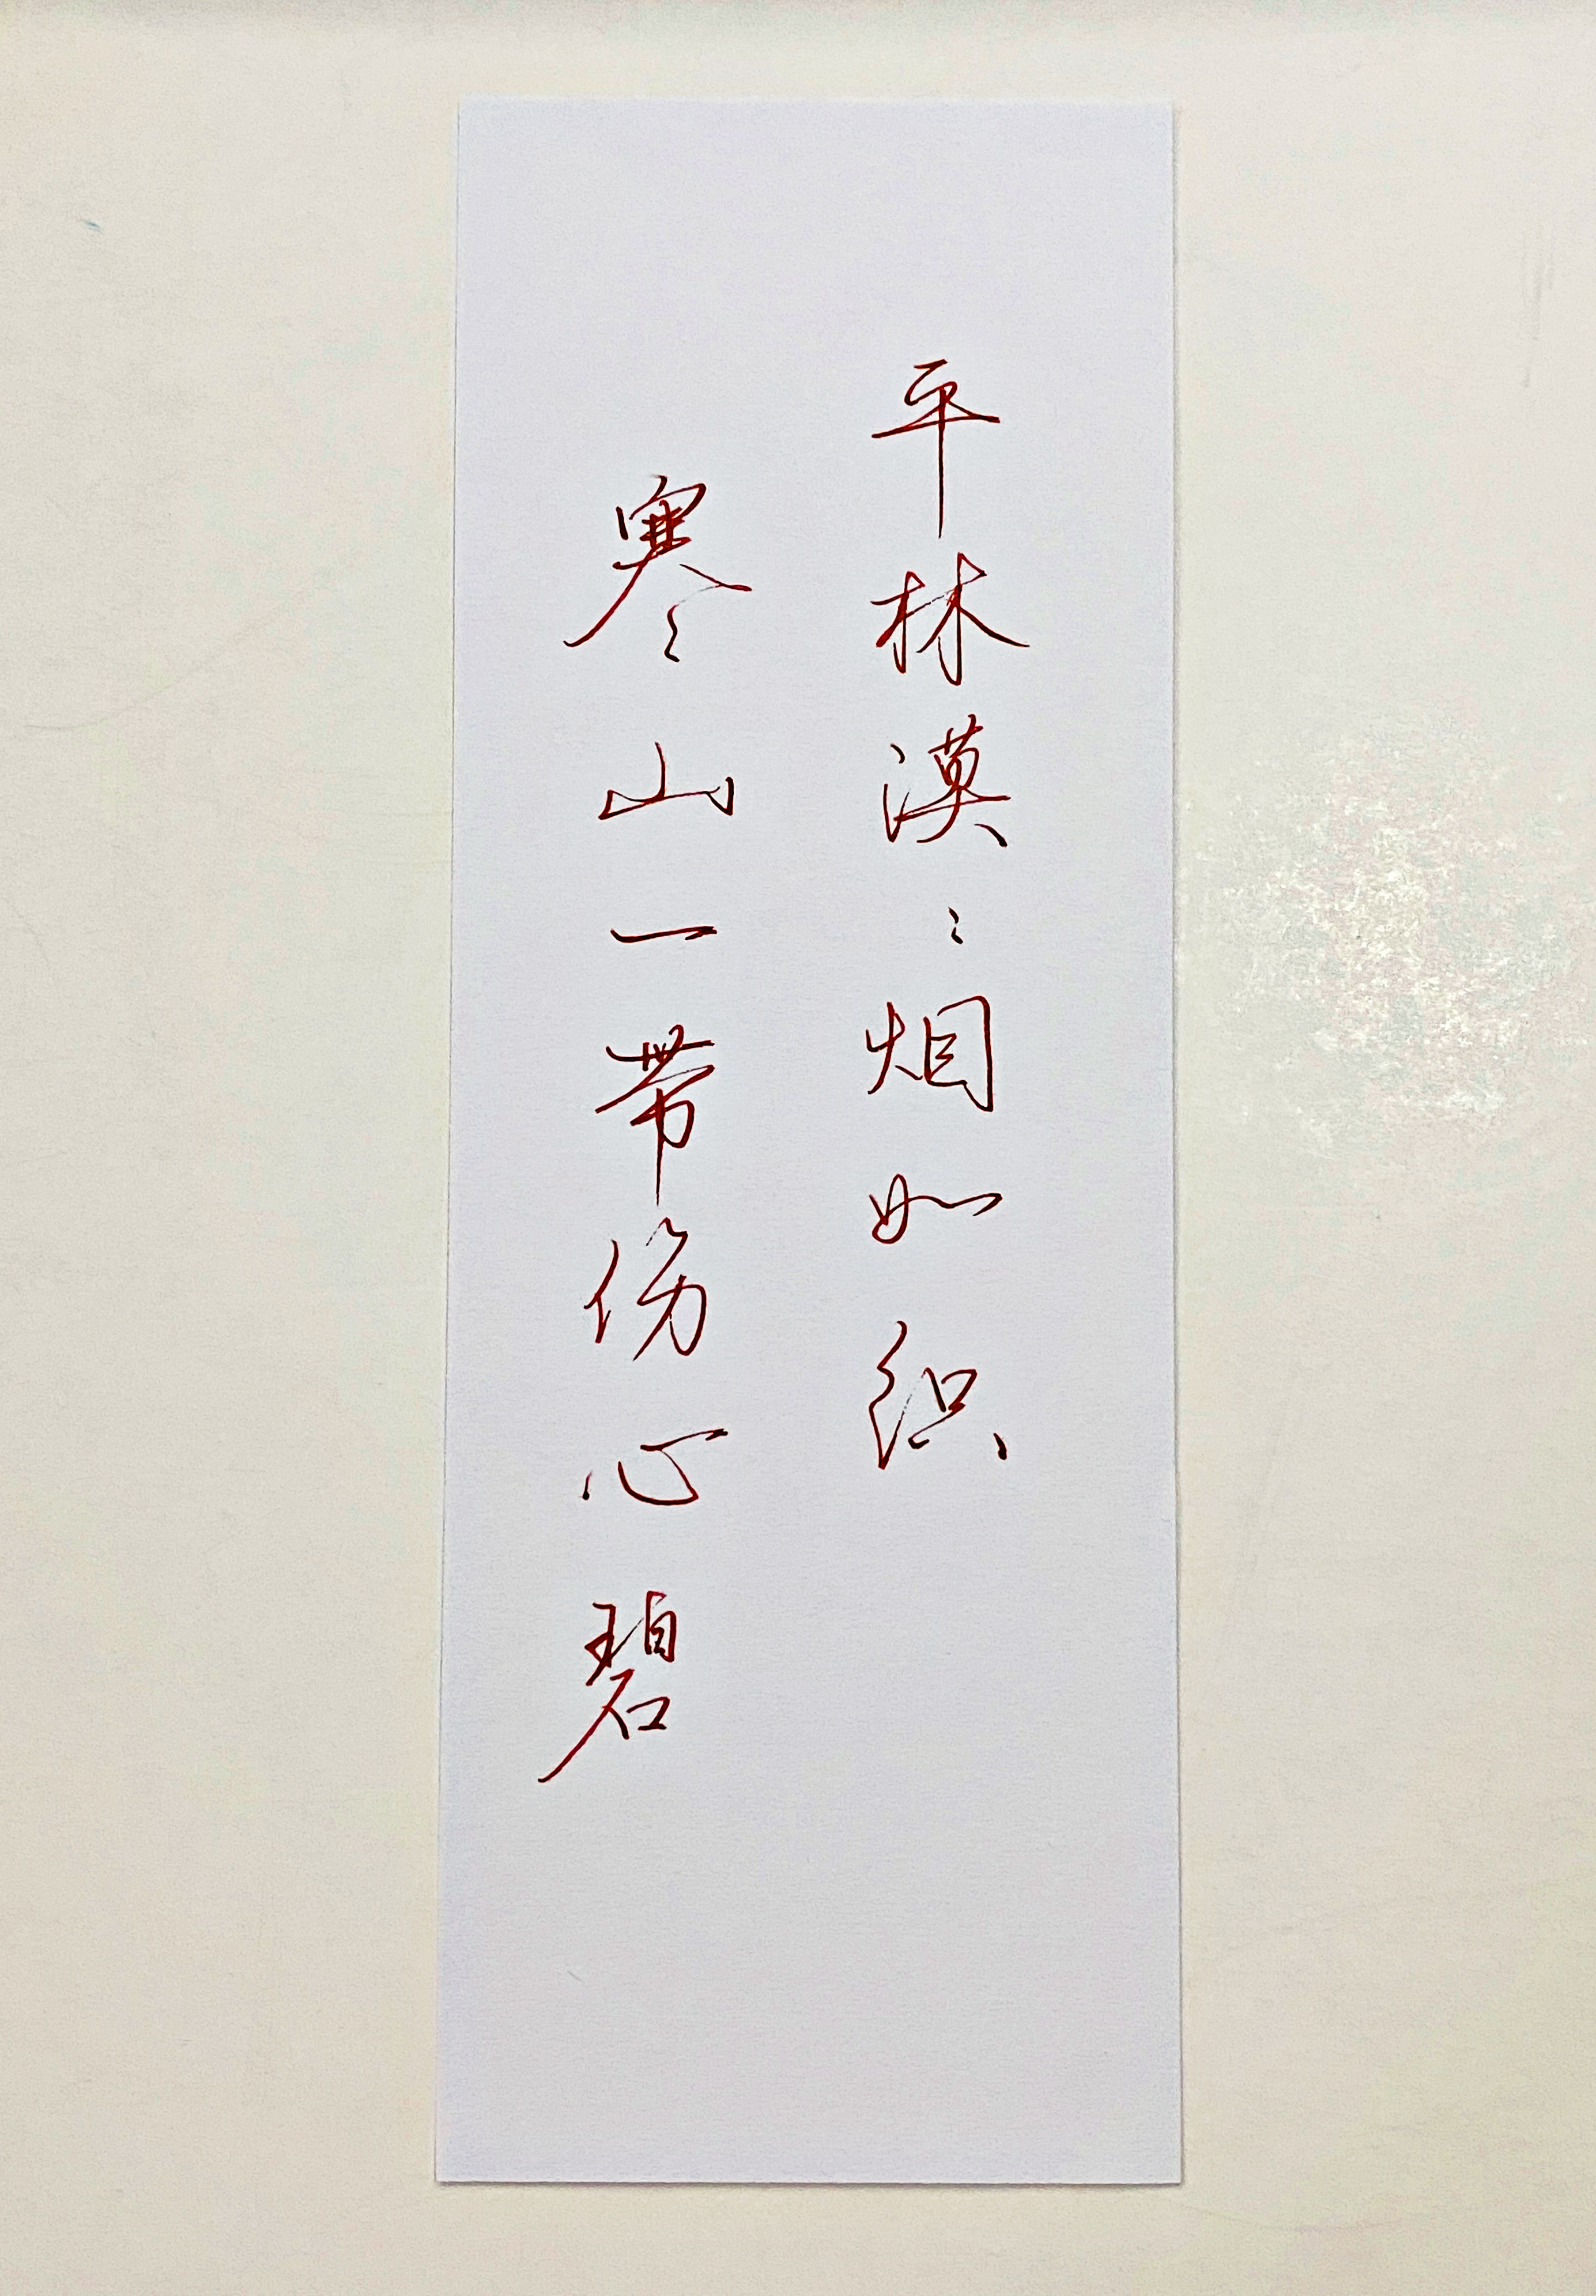 平林漠〻烟如织
寒山一带伤心碧